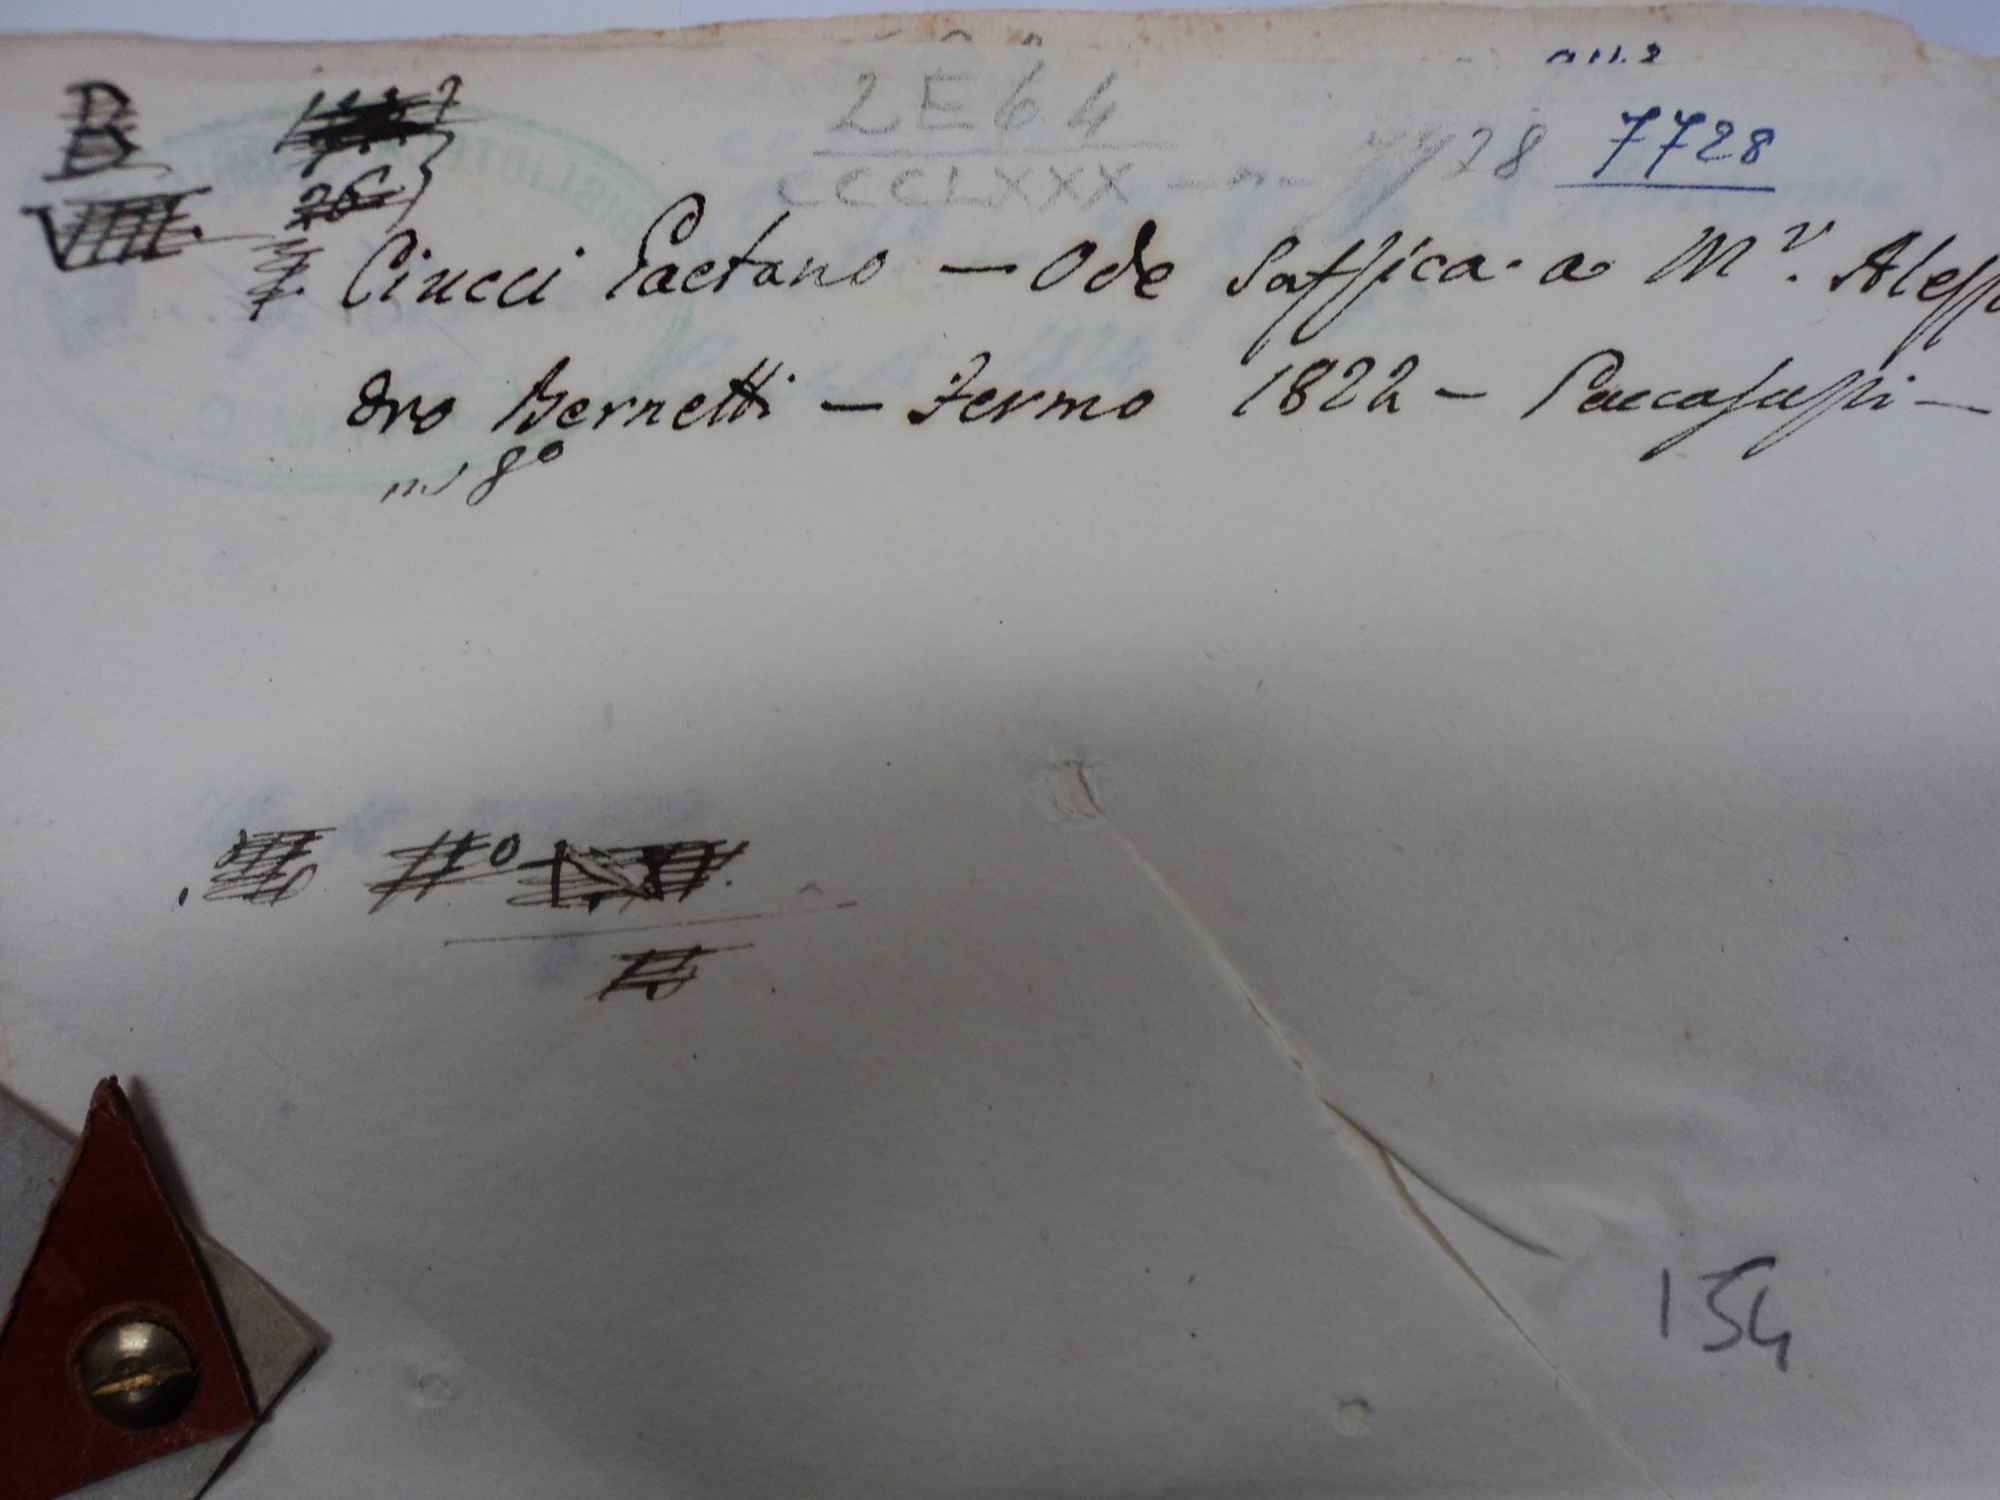 2E64
CCCLXXX - n - 7728 7728
B
VIII.
26
Ciucci Gaetano — Ode Saffica a Mr. Alessan
dro Bernetti — Fermo 1822 — Paccasassi —
in 8o
154